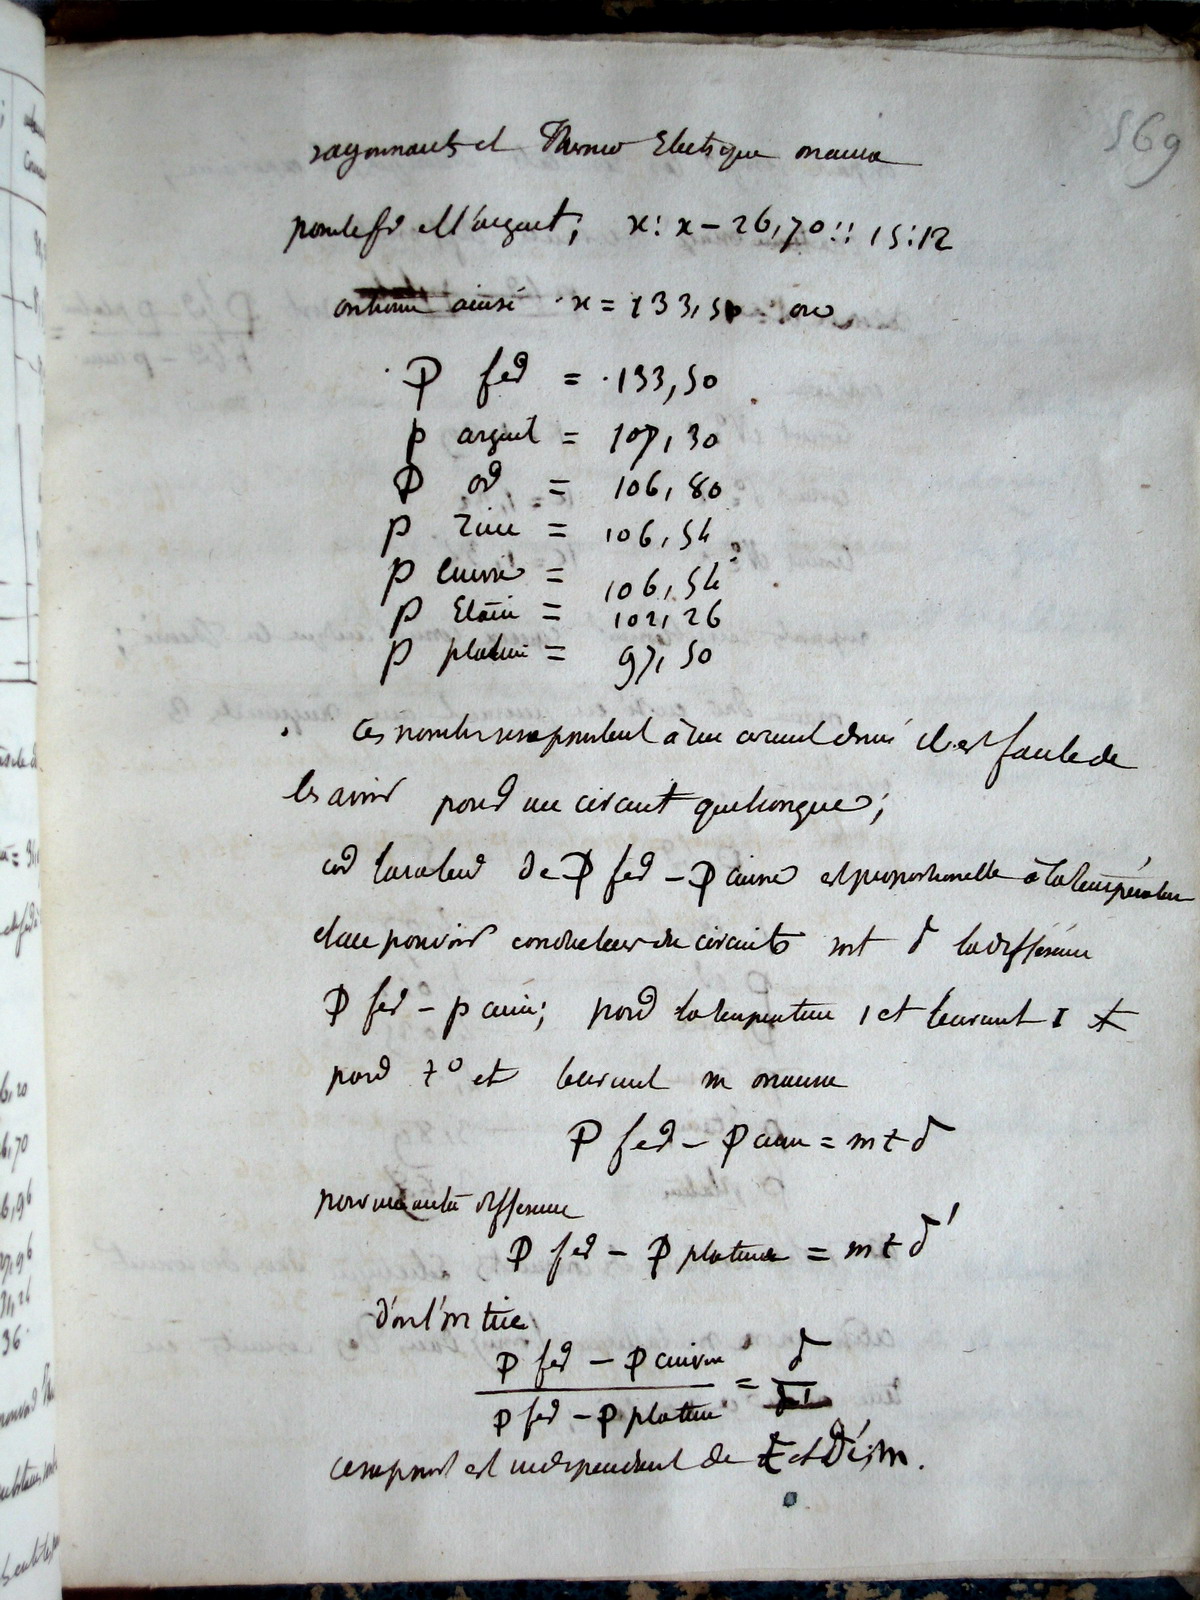 569
rayonnants et Thermo Electrique on aura
pour le fer et l'argent; x : x – 26,70 :: 15 : 12
on trouve ainsi x = 133,50 ou
P fer = 133,50
p argent = 107,30
P or = 106,80
p zinc = 106,54
p cuivre = 106,54
p Etain = 102,26
p platine = 97,50
Ces nombres répondent à un circuit donné il est facile de
les avoir pour un circuit quelconque;
car la valeur de P fer – P cuivre est proportionnelle à la température
et au pouvoir conducteur du circuit soit δ la différence
P fer – p cuivre; pour la température 1 et le circuit 1
pour t° et le circuit m on aura
P fer – P cuivre = m t δ
pour une autre différence
P fer – P platine = m t δ'
d'où l'on tire
P fer – P cuivre = δ
P fer – P platine δ'
ce rapport est indépendant de t et de m.